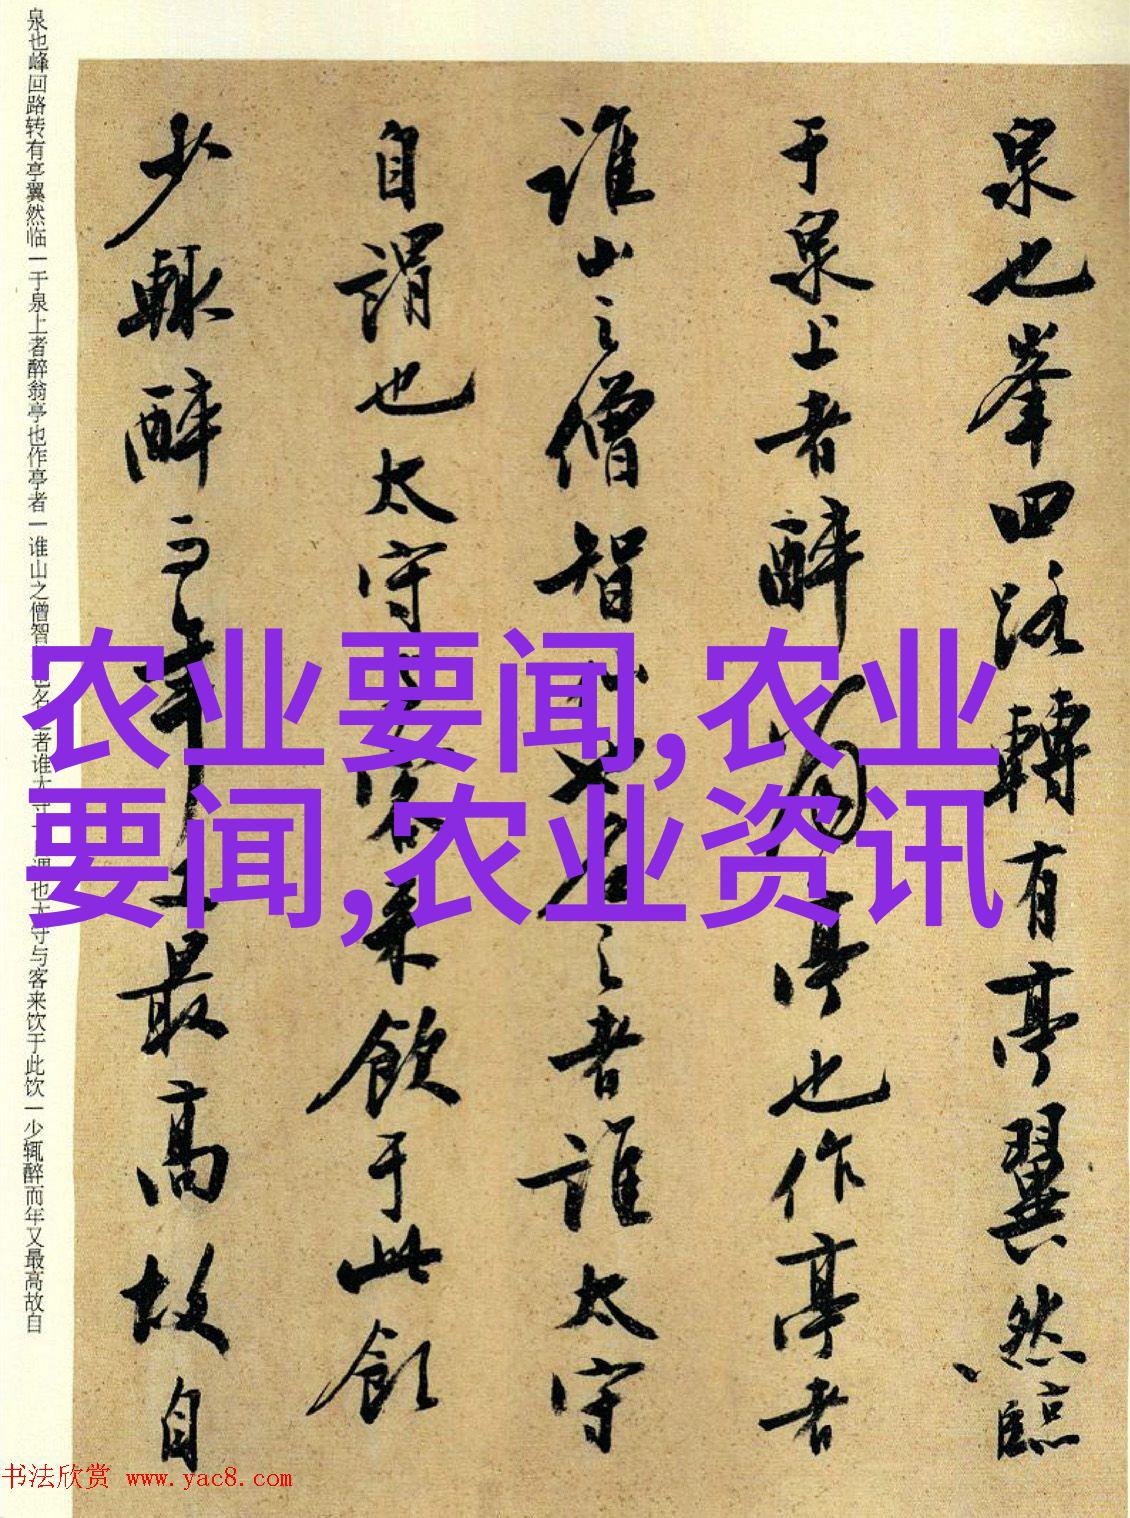 农业要闻,农业
要闻,农业资讯
泉也峯回路轉有亭翼然臨
于泉上者醉翁亭也作亭者
誰山之僧智也名之者誰太守
自謂也太守客来飲于此飲
少輒醉而年又最高故自
泉也峰回路转有亭翼然临一于泉上者醉翁亭也作亭者一谁山之僧智也名之者谁太守一自谓也太守与客来饮于此饮一少辄醉而年又最高故自
书法欣赏 www.yac8.com